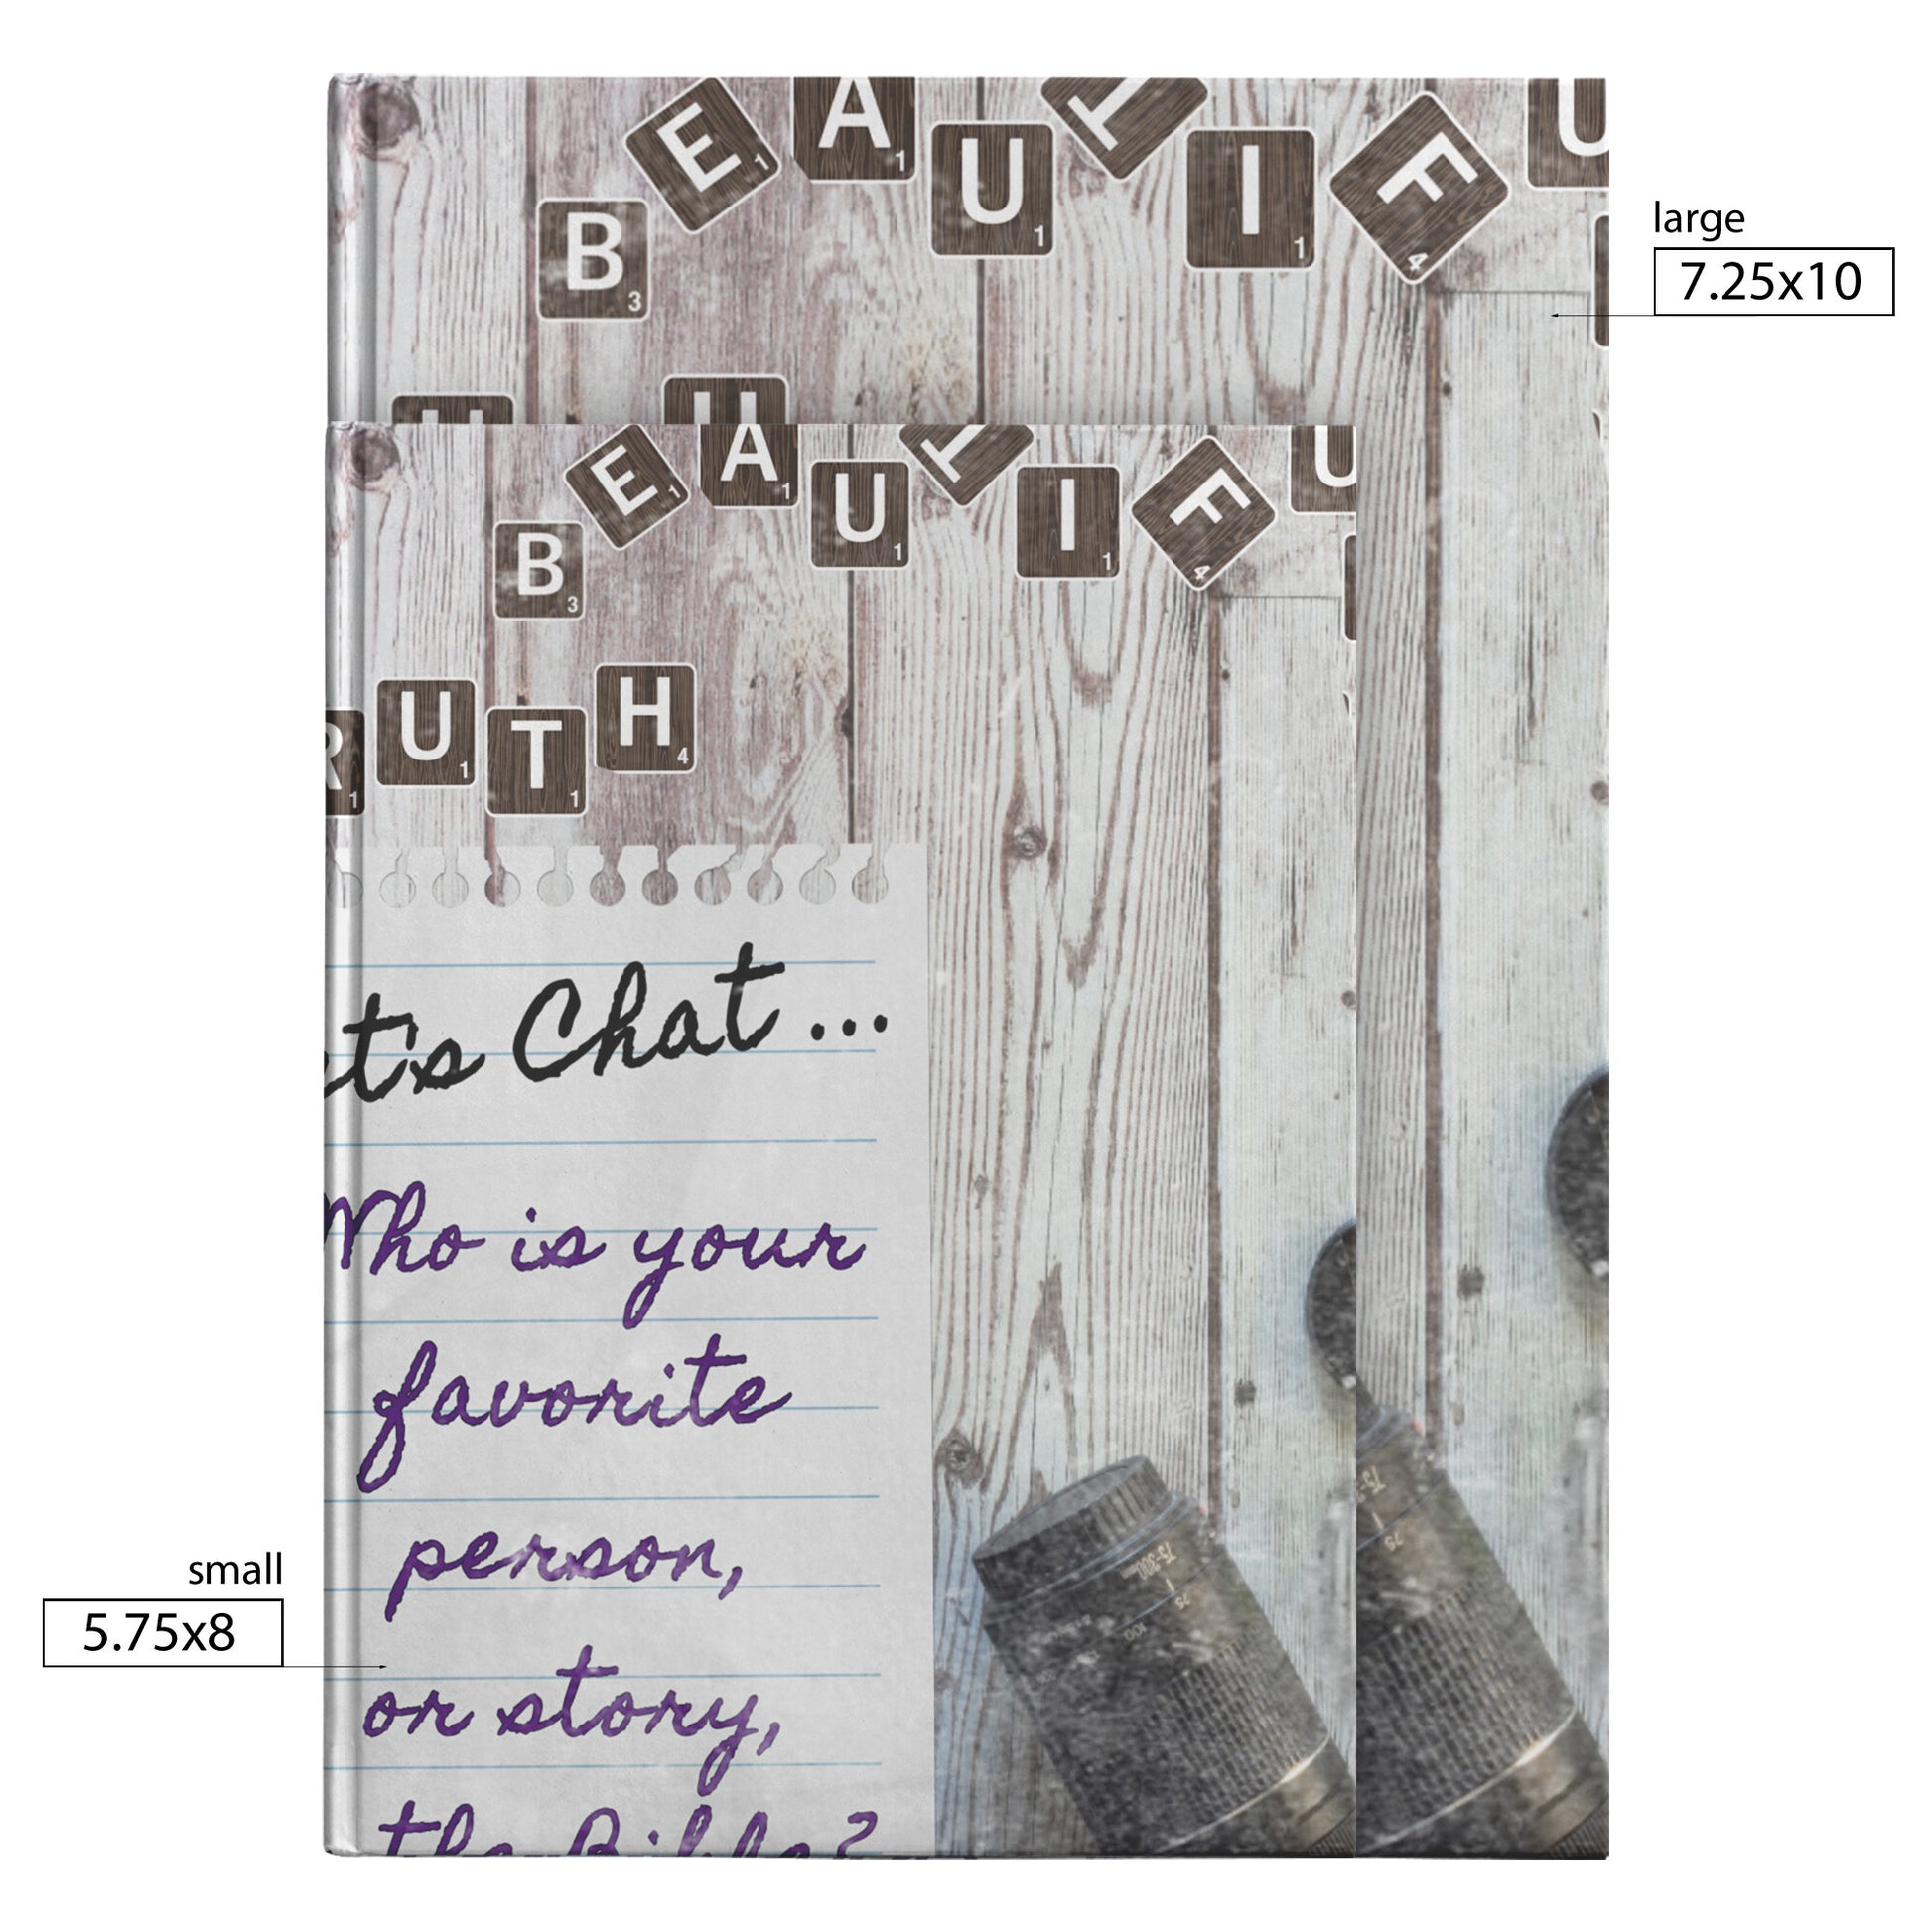 BEAUTIFU
large
7.25x10
BEAUTIFU
RUTH
et's Chat...
Who is your
favorite
person,
small
5.75x8
or story,
the Bible?